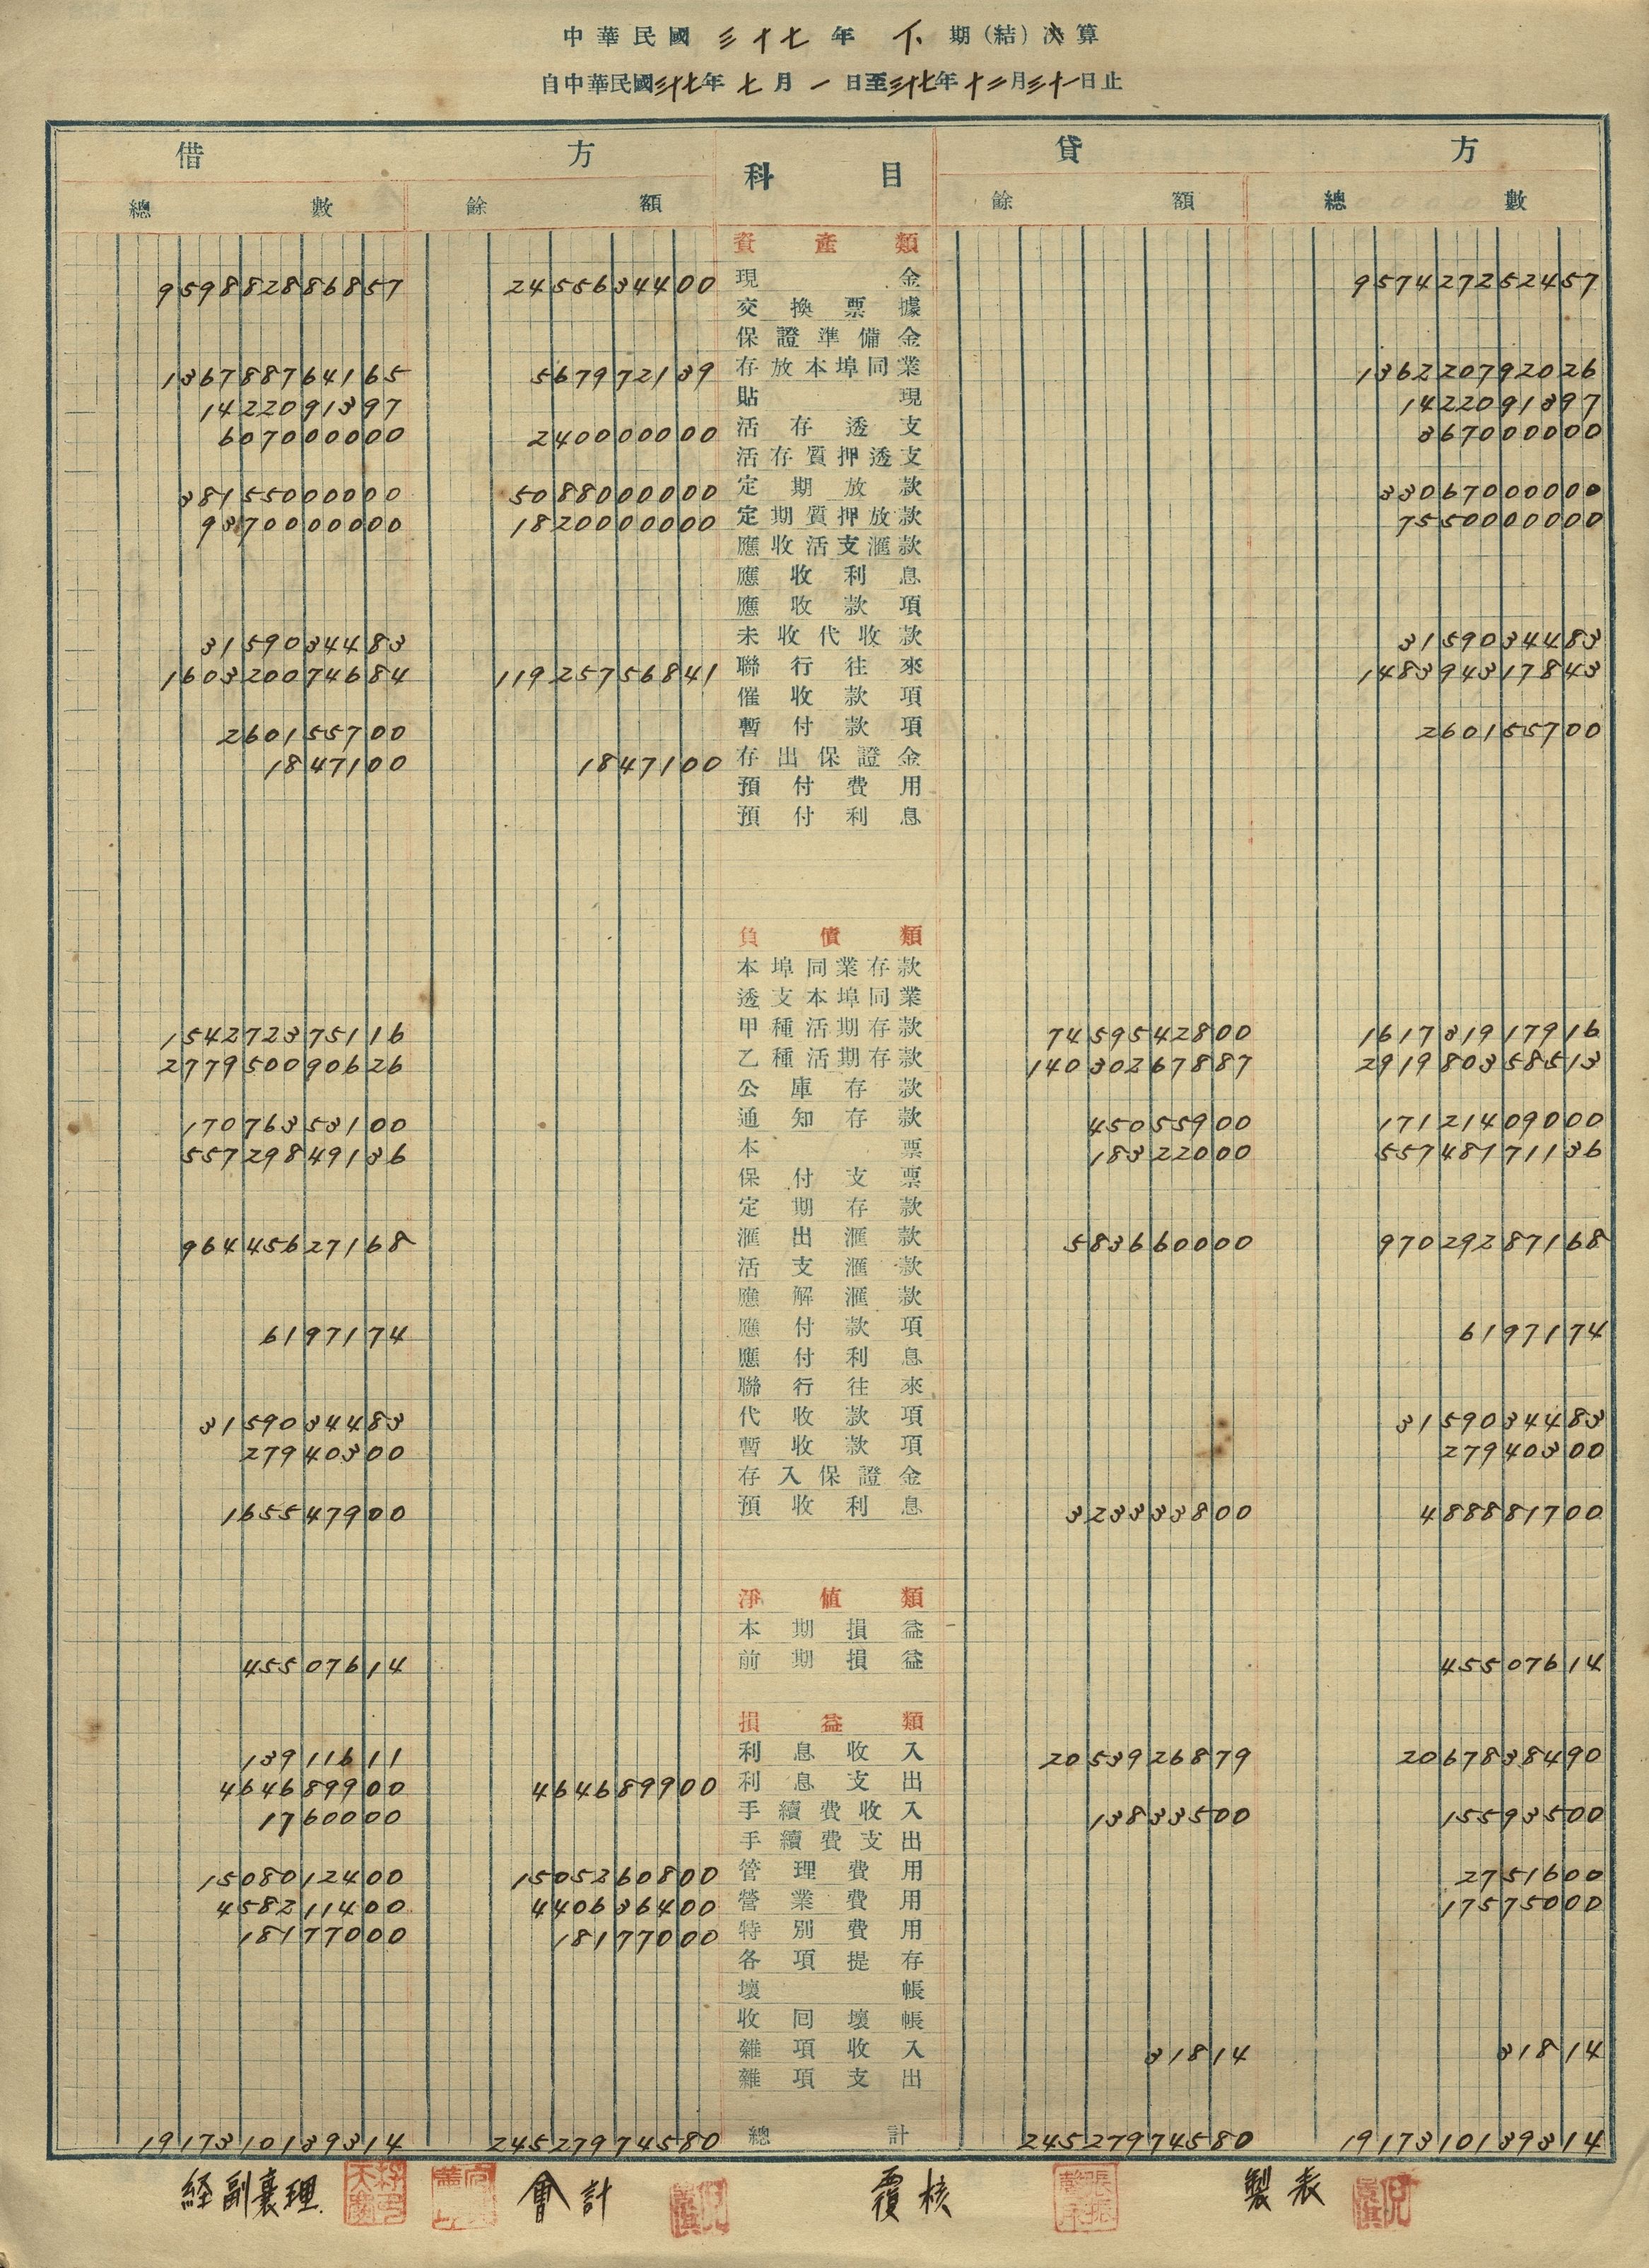 中華民國三十七年下期(結)決算
自中華民國三十七年七月一日至三十七年十二月三十一日止
借方 科目 貸方
總數 餘額 餘額 總數
資產類
959882886857 2455634400 現金 957427252457
交換票據
保證準備金
136788764165 567972139 存放本埠同業 136220792026
1422091397 貼現 1422091397
607000000 240000000 活存透支 367000000
活存質押透支
38155000000 5088000000 定期放款 33067000000
9370000000 1820000000 定期質押放款 7550000000
應收活支滙款
應收利息
應收款項
3159034483 未收代收款 3159034483
160320074684 11925756841 聯行往來 148394317843
催收款項
260155700 暫付款項 260155700
1847100 1847100 存出保證金
預付費用
預付利息
負債類
本埠同業存款
透支本埠同業
154272375116 甲種活期存款 7459542800 161731917916
277950090626 乙種活期存款 14030267887 291980358513
公庫存款
17076353100 通知存款 45055900 17121409000
55729849136 本票 18322000 55748171136
保付支票
定期存款
96445627168 滙出滙款 583660000 97029287168
活支滙款
應解滙款
6197174 應付款項 6197174
應付利息
聯行往來
3159034483 代收款項 3159034483
27940300 暫收款項 27940300
存入保證金
165547900 預收利息 323333800 488881700
淨值類
本期損益
45507614 前期損益 45507614
損益類
13911611 利息收入 2053926879 2067838490
464689900 464689900 利息支出
1760000 手續費收入 13833500 15593500
手續費支出
1508012400 1505260800 管理費用 2751600
458211400 440636400 營業費用 17575000
18177000 18177000 特別費用
各項提存
壞帳
收回壞帳
雜項收入 31814 31814
雜項支出
1917310139314 24527974580 總計 24527974580 1917310139314
経副襄理 會計 覆核 製表